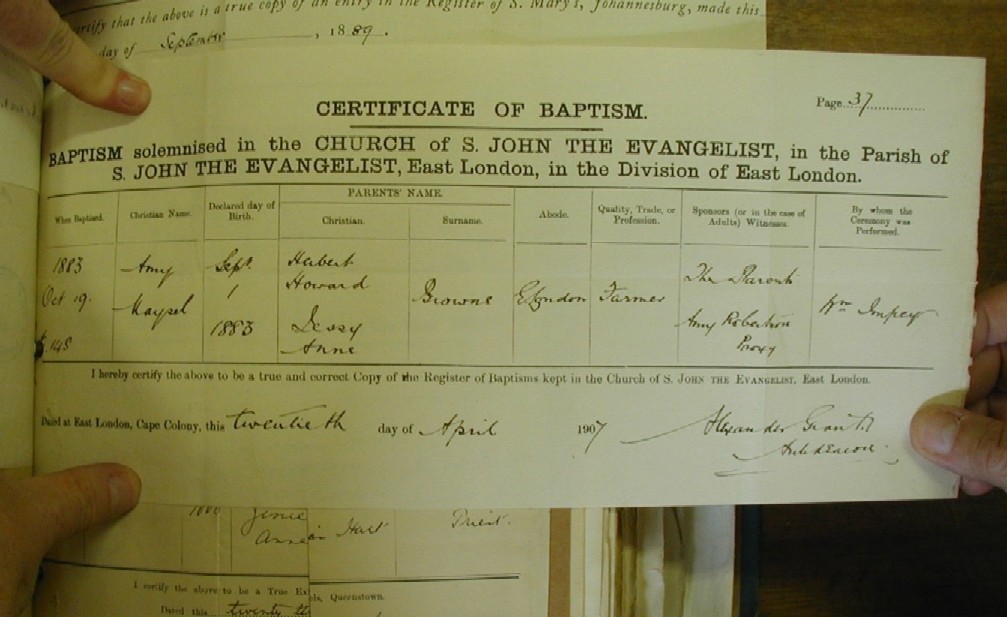 certify that the above is a true copy of an entry in the Register of S. Mary's, Johannesburg, made this
day of September, 1889.
Page 37
CERTIFICATE OF BAPTISM.
BAPTISM solemnised in the CHURCH of S. JOHN THE EVANGELIST, in the Parish of
S. JOHN THE EVANGELIST, East London, in the Division of East London.
When Baptised.
Christian Name.
Declared day of
Birth.
PARENTS' NAME.
Christian.
Surname.
Abode.
Quality, Trade, or
Profession.
Sponsors (or in the case of
Adults) Witnesses.
By whom the
Ceremony was
Performed.
1883
Oct 19.
148
Amy
Maysel
Sept.
1
1883
Herbert
Howard
Jessy
Anne
Browne
E London
Farmer
The Parents
Amy Robertson
Proxy
Wm Impey
I hereby certify the above to be a true and correct Copy of the Register of Baptisms kept in the Church of S. JOHN THE EVANGELIST, East London.
Dated at East London, Cape Colony, this twentieth day of April 1907
Alexander Grant
Archdeacon
Anne
Hart
Priest.
I certify the above to be a True Ex
ols, Queenstown.
Dated this twenty th